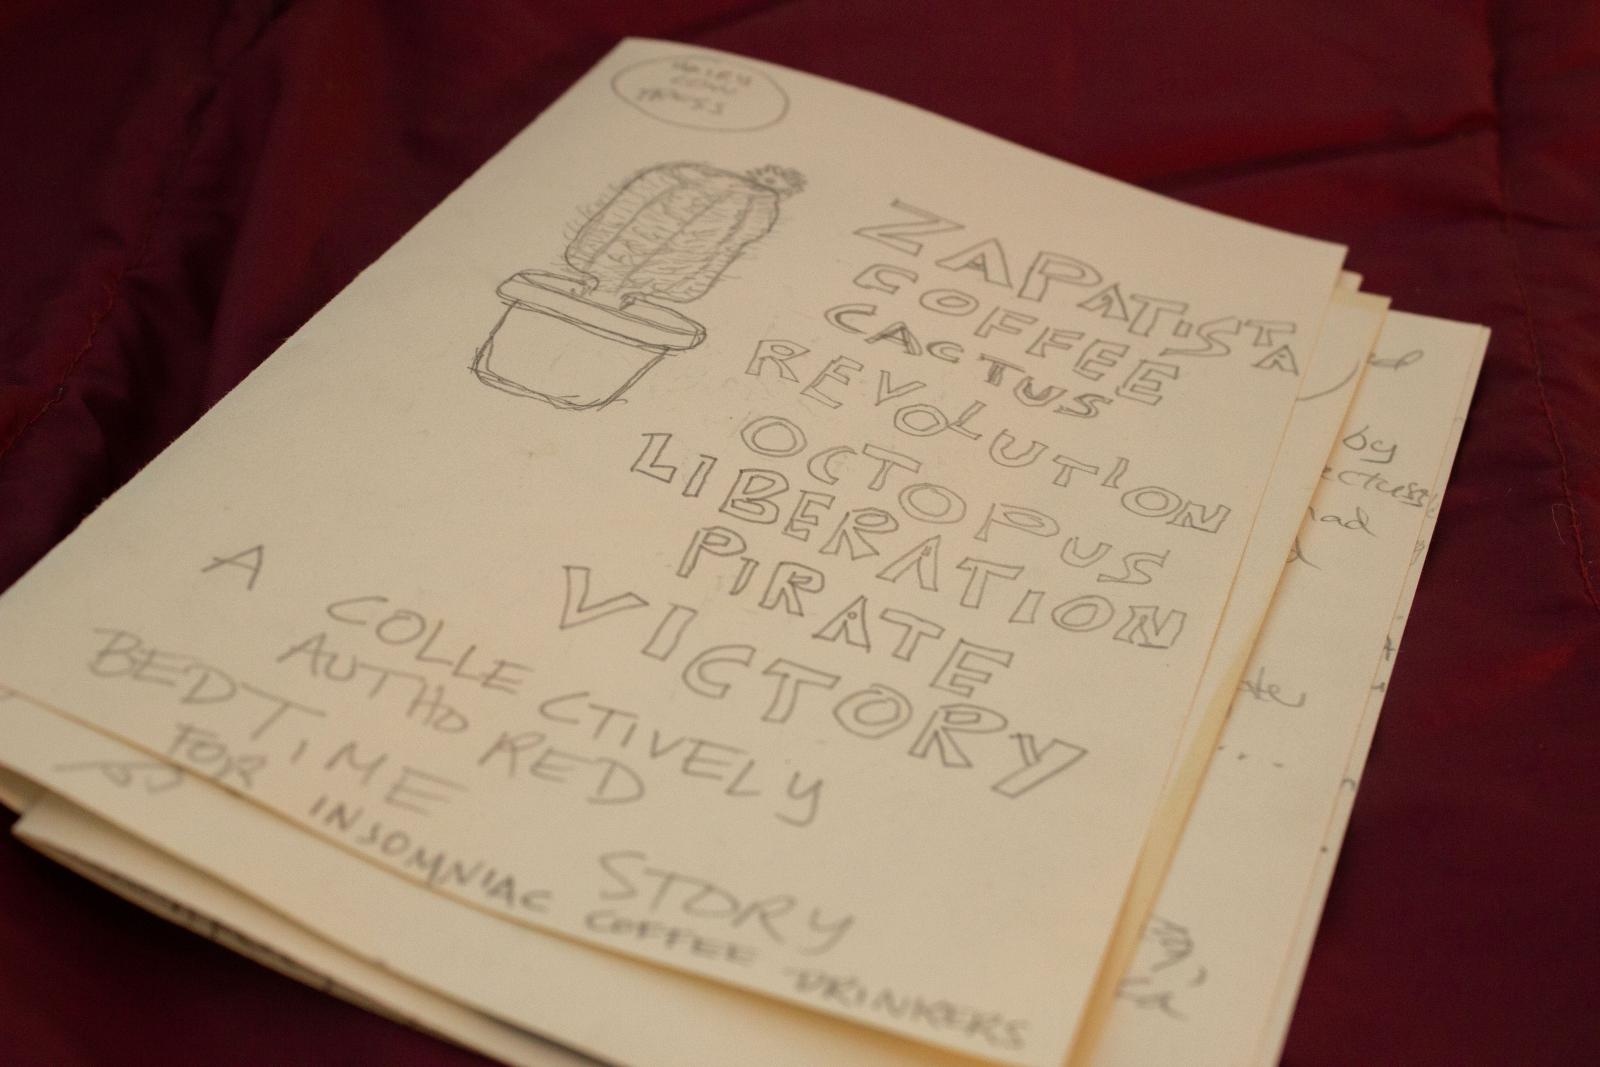 HAIRY
COW
PRESS
ZAPATISTA
COFFEE
CACTUS
REVOLUTION
OCTOPUS
LIBERATION
PIRATE
VICTORY
A COLLECTIVELY
AUTHORED
BEDTIME STORY
FOR INSOMNIAC COFFEE DRINKERS
by
had